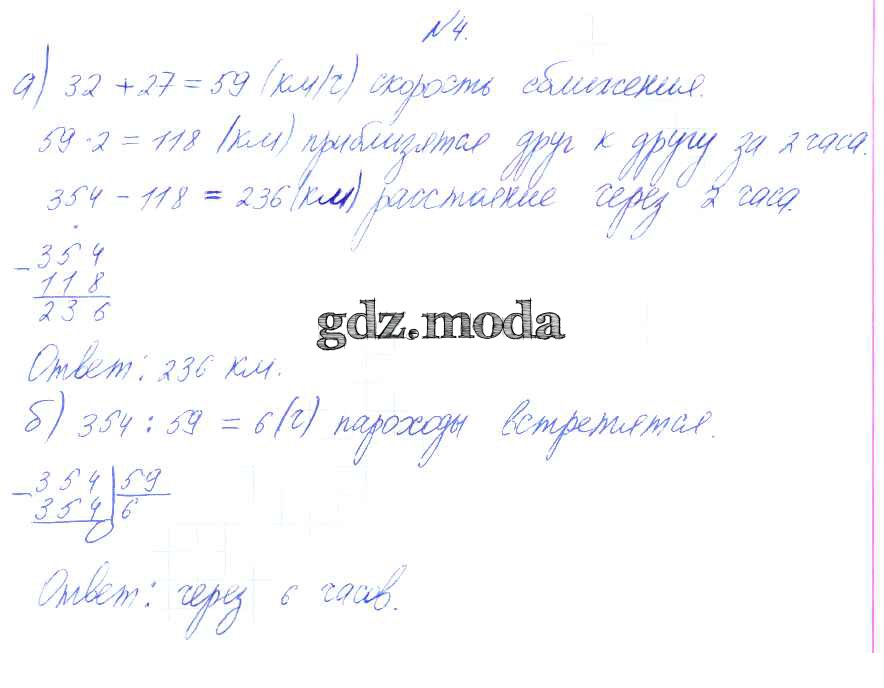 №4.
а) 32 + 27 = 59 (км/ч) скорость сближения.
59 · 2 = 118 (км) приблизятся друг к другу за 2 часа.
354 - 118 = 236 (км) расстояние через 2 часа.
- 354
118
236
gdz.moda
Ответ: 236 км.
б) 354 : 59 = 6 (ч) пароходы встретятся.
- 354 | 59
354 | 6
0
Ответ: через 6 часов.